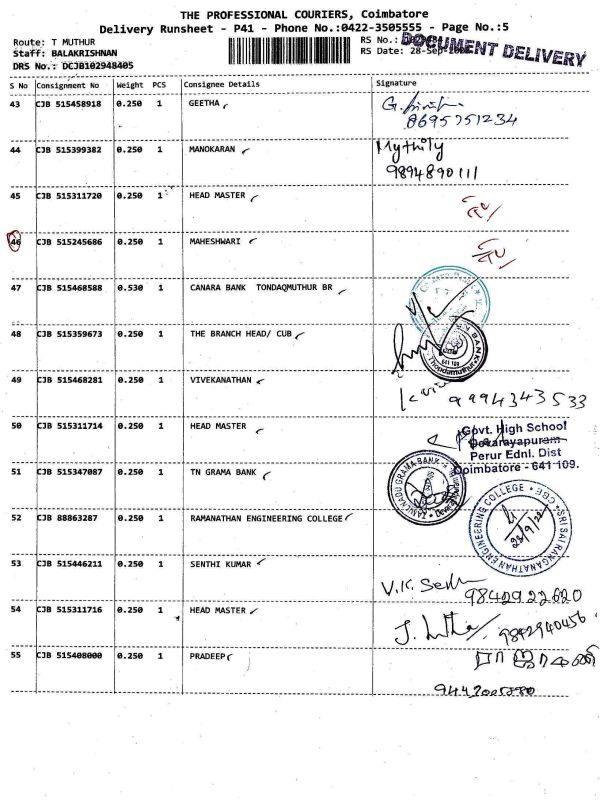 THE PROFESSIONAL COURIERS, Coimbatore
Delivery Runsheet - P41 - Phone No.:0422-3505555 - Page No.:5
Route: T MUTHUR
RS No.:
DOCUMENT DELIVERY
Staff: BALAKRISHNAN
RS Date: 28-Sep-
DRS No.: DCJB102948405
S No Consignment No Weight PCS Consignee Details Signature
43 CJB 515458918 0.250 1 GEETHA
8695751234
44 CJB 515399382 0.250 1 MANOKARAN Mythily
9894890111
45 CJB 515311720 0.250 1 HEAD MASTER
46 CJB 515245686 0.250 1 MAHESHWARI
47 CJB 515468588 0.530 1 CANARA BANK TONDAQMUTHUR BR
48 CJB 515359673 0.250 1 THE BRANCH HEAD/ CUB
49 CJB 515468281 0.250 1 VIVEKANATHAN
9994343533
50 CJB 515311714 0.250 1 HEAD MASTER
Govt. High School
Devarayapuram
Perur Ednl. Dist
Coimbatore - 641 109.
51 CJB 515347087 0.250 1 TN GRAMA BANK
TAMIL NADU GRAMA BANK
52 CJB 88863287 0.250 1 RAMANATHAN ENGINEERING COLLEGE
SRI SAI RANGANATHAN ENGINEERING COLLEGE * CBE *
28/9/22
53 CJB 515446211 0.250 1 SENTHI KUMAR
V.K.
9842922620
54 CJB 515311716 0.250 1 HEAD MASTER
9842940456
55 CJB 515408000 0.250 1 PRADEEP